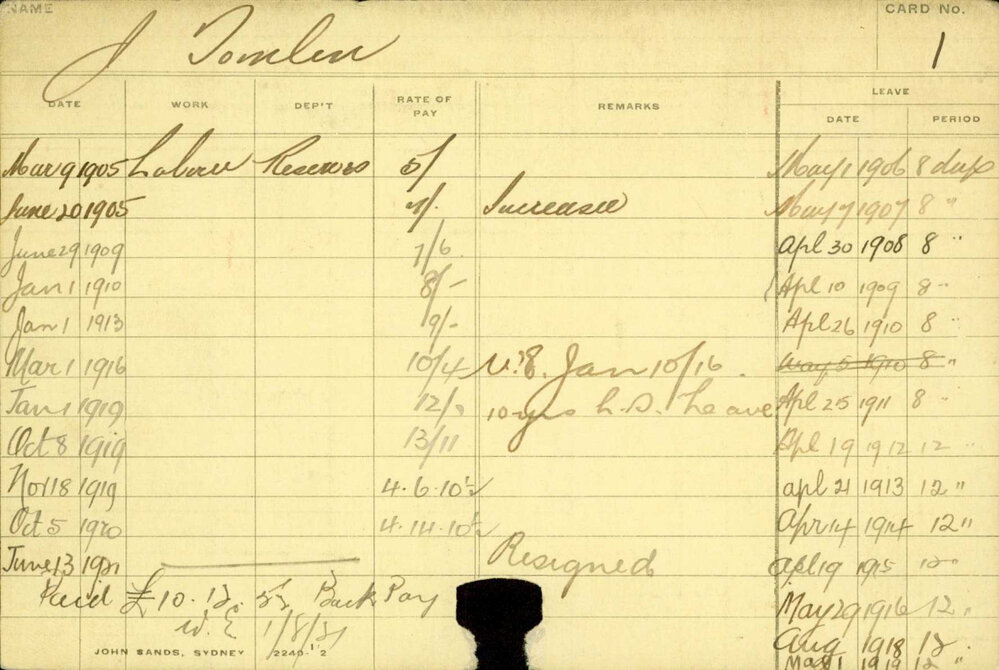 NAME CARD No.
J Tomlin 1
DATE WORK DEP'T RATE OF PAY REMARKS LEAVE
DATE PERIOD
Mar 9 1905 Labour Reserves 6/ May 1 1906 8 days
June 20 1905 7/. Increased May 7 1907 8 "
June 29 1909 7/6 Apl 30 1908 8 "
Jan 1 1910 8/- Apl 10 1909 8 "
Jan 1 1913 9/- Apl 26 1910 8 "
Mar 1 1916 10/4 Jan 10/16 May 5 1910 8 "
Jan 1 1919 12/ 10 yrs L.S. Leave Apl 25 1911 8 "
Oct 8 1919 13/11 Apl 19 1912 12 "
Nov 18 1919 4.6.10½ apl 21 1913 12 "
Oct 5 1920 4.14.10½ Apr 14 1914 12 "
June 13 1921 Resigned apl 19 1915 12
Paid £10.12. Back Pay May 29 1916 12 "
W.E 1/8/21 Aug 1918 12
JOHN SANDS, SYDNEY May 1 1919 12 "